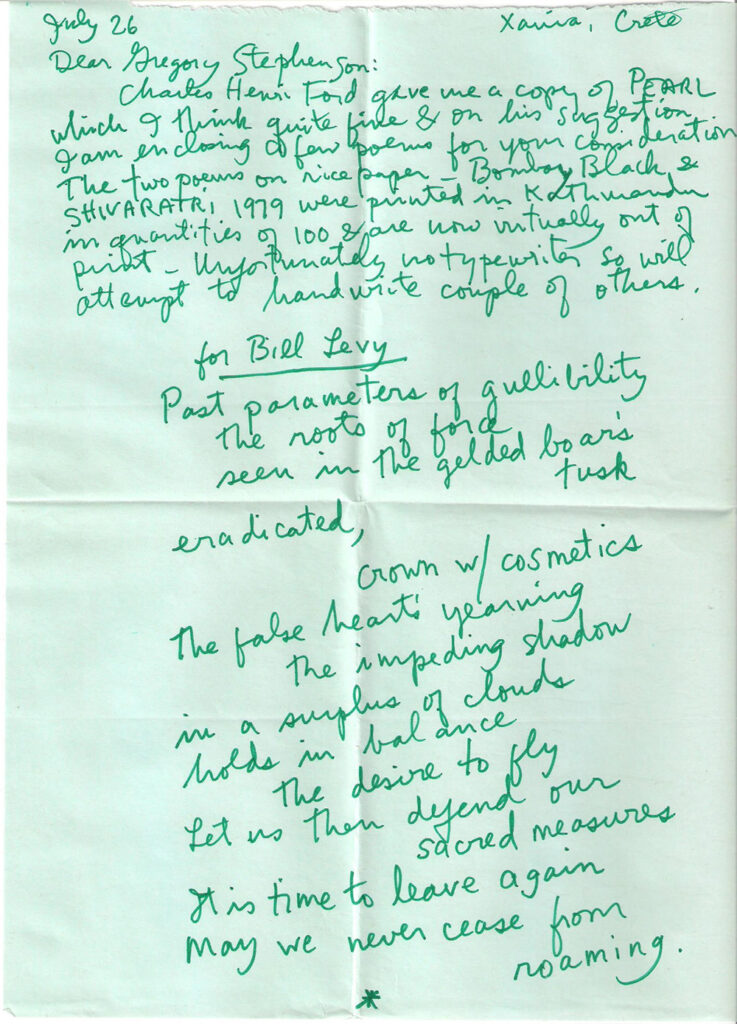 July 26 Xania, Crete
Dear Gregory Stephenson:
Charles Henri Ford gave me a copy of PEARL
which I think quite fine & on his suggestion
I am enclosing a few poems for your consideration
The two poems on rice paper - Bombay Black, &
SHIVARATRI 1979 were printed in Kathmandu
in quantities of 100 & are now virtually out of
print - Unfortunately no typewriter so will
attempt to handwrite couple of others.
for Bill Levy
Past parameters of gullibility
the roots of
seen in the gelded boar's
tusk
eradicated,
crown w/ cosmetics
the false heart's yearning
the impeding shadow
in a surplus of clouds
holds in balance
the desire to fly
Let us then defend our
sacred measures
It is time to leave again
May we never cease from
roaming.
*